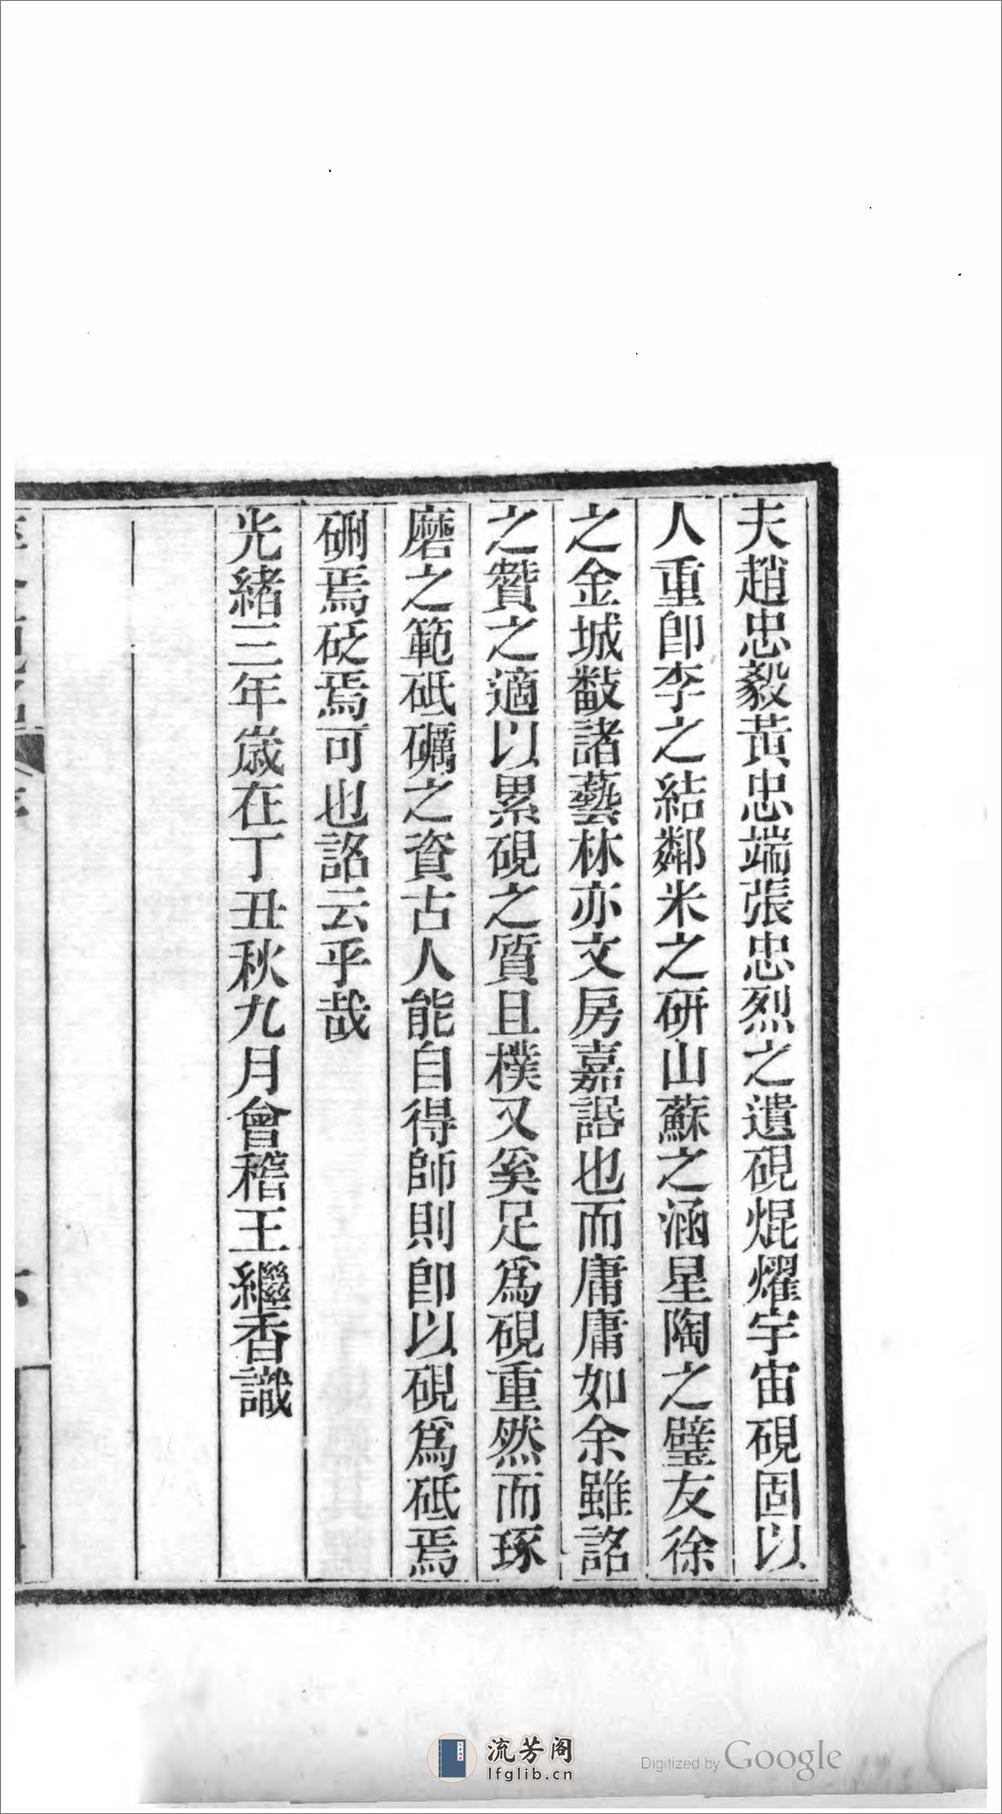 夫趙忠毅黃忠端張忠烈之遺硯焜燿宇宙硯固以
人重卽李之結鄰米之研山蘇之涵星陶之璧友徐
之金城敼諸藝林亦文房嘉話也而庸庸如余雖詺
之贊之適以累硯之質且樸又奚足爲硯重然而琢
磨之範砥礪之資古人能自得師則卽以硯爲砥焉
硎焉砭焉可也詺云乎哉
光緒三年歲在丁丑秋九月會稽王繼香識
流芳阁
lfglib.cn
Digitized by Google